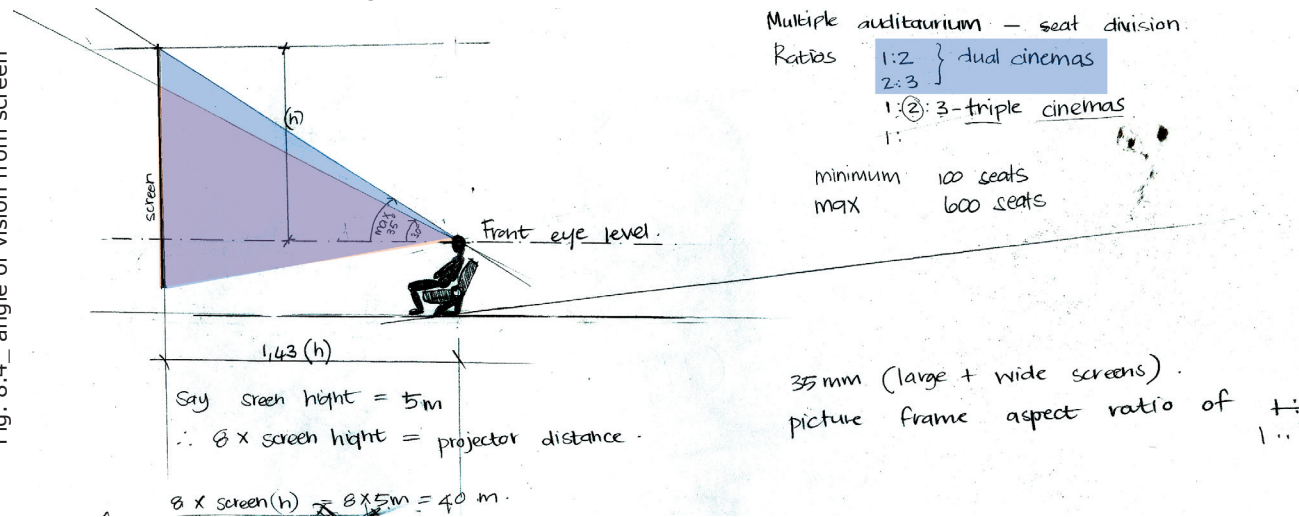 Fig. 8.4_ angle of vision from screen
(h)
screen
max
35°
30°
Front eye level.
1,43 (h)
Say sreen hight = 5m
∴ 8 x screen hight = projector distance.
8 x screen(h) = 8x5m = 40 m.
Multiple auditaurium - seat division.
Ratios 1:2 } dual cinemas
2:3
1:2:3 - triple cinemas
1:
minimum 100 seats
max 600 seats
35 mm (large + wide screens).
picture frame aspect ratio of